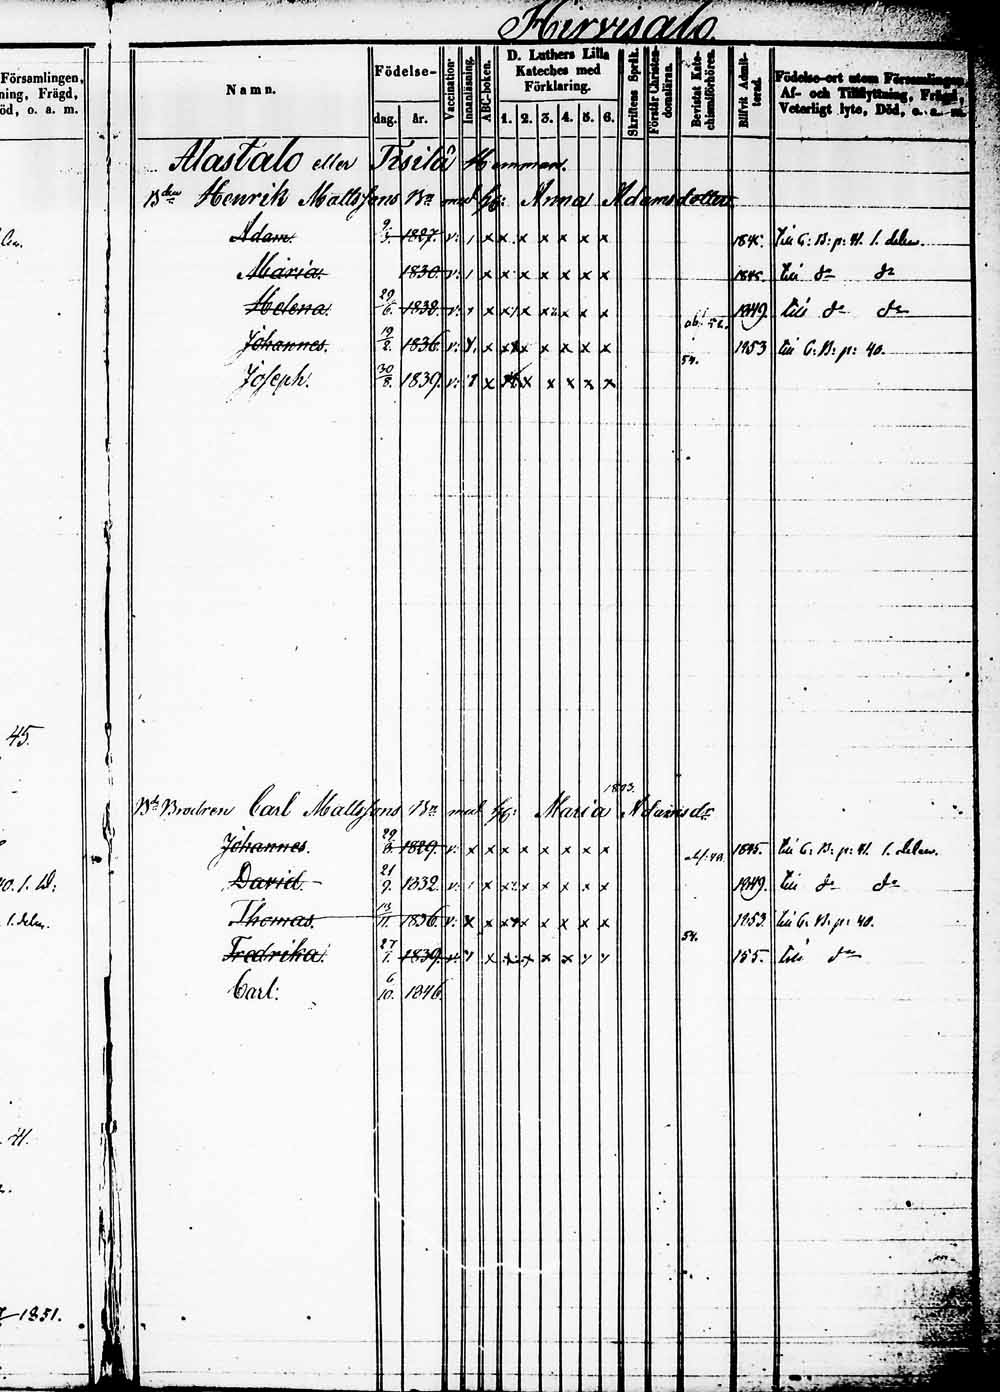 Hirvisalo.
Församlingen,
ning, Frägd,
öd, o. a. m.
Namn.
Födelse-
dag. år.
Vaccination.
Innanläsning.
ABC-boken.
D. Luthers Lilla
Kateches med
Förklaring.
1. 2. 3. 4. 5. 6.
Skriftens Språk.
Förstår Christen-
domsläran.
Bevistat Kate-
chismiförhören.
Blifvit Admit-
terad.
Födelse-ort utom Församlingen,
Af- och Tillflyttning, Frägd,
Veterligt lyte, Död, o. a. m.
Alastalo eller Tisilä Hemman.
Bden Henrik Mattssons Bn med h: Anna Adamsdotter
Adam. 9/3. 1827. v: 1 x x x x x x x 1845. till C: B: p: 41. 1. delen.
Maria. 1830. v: 1 x x x x x x x 1845. till do do
Helena. 29/6. 1832. v: x x x x x x 1849. till do do
Johannes. 19/2. 1836. v: x x x x x x 1853 till C: B: p: 40.
54.
Joseph. 30/8. 1839. v: x x x x x x
45.
1803.
Brodren Carl Mattssons Bn med h: Maria Adamsdr
Johannes. 29/3. 1829. v: x x x x x x x x 1845. till C: B: p: 41 1. delen.
David. 21/9. 1832. v: 1 x x x x x x 1849. till do do
1. delen. Thomas. 13/11. 1836. v: x x x x x x x 1853. till C: B: p: 40.
54.
Fredrika. 27/7. 1839. v: x x x x x 155. till do
Carl: 6/10. 1846.
41.
1851.